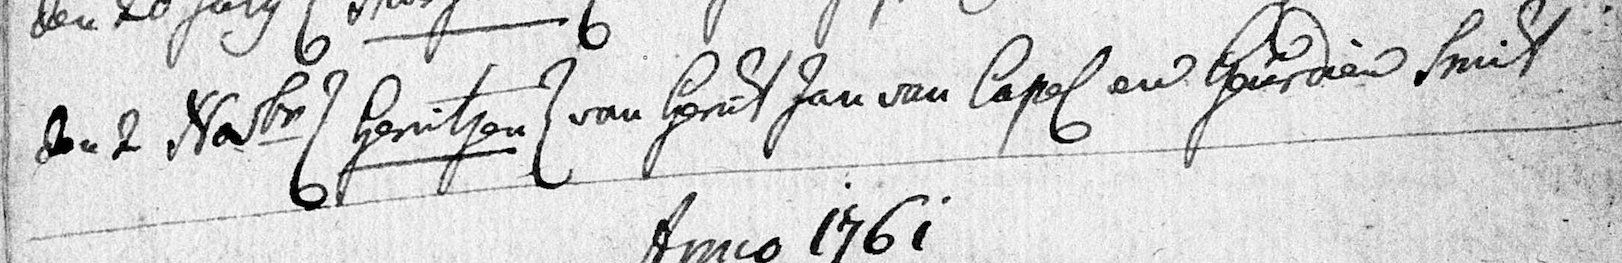 den 20 July
den 2 Novbr Gerritjen van Gerrit Jan van Capel en Geurdien Smit
Anno 1761